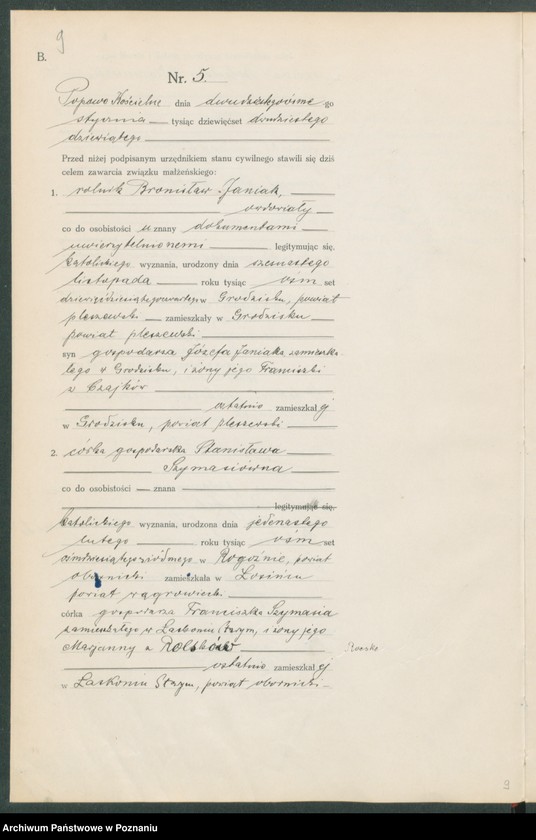 9
B.
Nr. 5.
Popowo Kościelne dnia dwudziestego ósmego
stycznia tysiąc dziewięćset dwudziestego
dziewiątego
Przed niżej podpisanym urzędnikiem stanu cywilnego stawili się dziś
celem zawarcia związku małżeńskiego:
1. rolnik Bronisław Janiak,
co do osobistości u znany dokumentami
uwierzytelnionemi legitymując się,
katolickiego wyznania, urodzony dnia szesnastego
listopada roku tysiąc ośm set
dziewięćdziesiątego czwartego w Grodzisku, powiat
pleszewski zamieszkały w Grodzisku
powiat pleszewski
syn gospodarza Józefa Janiaka zamieszka-
łego w Grodzisku, i żony jego Franciszki
z Czajków
ostatnio zamieszkałej
w Grodzisku, powiat pleszewski
2. córka gospodarska Stanisława
Szymasiówna
co do osobistości znana
legitymując się,
katolickiego wyznania, urodzona dnia jedenastego
lutego roku tysiąc ośm set
w Rogoźnie, powiat
obornicki zamieszkała w Łosińcu
powiat wągrowiecki
córka gospodarza Franciszka Szymasia
zamieszkałego w Laskoniu Starym, i żony jego
Maryanny z
ostatnio zamieszkałej
w Laskoniu Starym, powiat obornicki
9
Archiwum Państwowe w Poznaniu